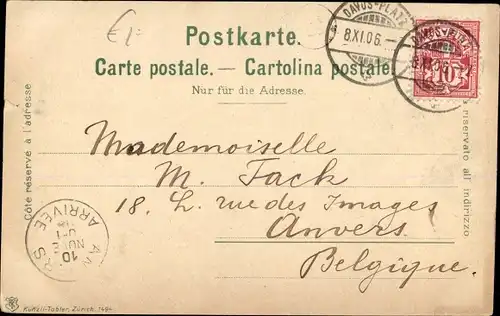 £1-
Postkarte.
DAVOS-PLATZ
8.XI.06.
DAVOS-PLATZ
8.XI.06.
10
Carte postale. — Cartolina postale
Nur für die Adresse.
Côté réservé à l'adresse
riservato all' indirizzo
Mademoiselle
M. Tack
18. L. rue des Images
Anvers
Belgique.
ARRIVÉE
10
Künzli-Tobler, Zürich. 1494